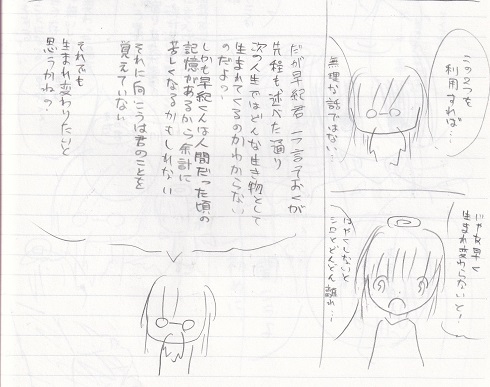 この2つを
利用すれば…
無理な話ではない…
じゃあ早く
生まれ変わらないと!
はやくしないと
シロとどんどん離れ…
だが早紀君 一つ言っておくが
先程も述べた通り
次の人生ではどんな生き物として
生まれてくるのかわからない
のだよっ
しかも早紀くんは人間だった頃の
記憶があるから余計に
苦しくなるかもしれない
それに向こうは君のことを
覚えていない
それでも
生まれ変わりたいと
思うかね?